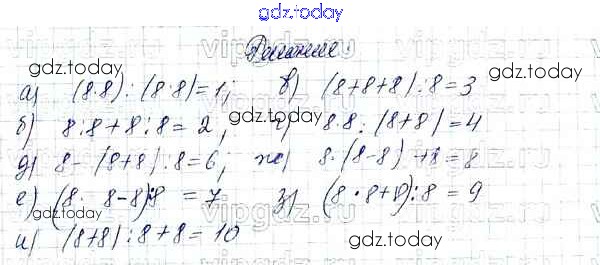 gdz.today
Решение
gdz.today
а) (8·8) : (8·8) = 1; в) (8+8+8) : 8 = 3
gdz.today
б) 8:8 + 8:8 = 2; г) 8·8 : (8+8) = 4
д) 8 - (8+8) : 8 = 6; ж) 8·(8-8) + 8 = 8
е) (8· 8-8):8 = 7 з) (8·8+8):8 = 9
gdz.today
и) (8+8) : 8 + 8 = 10
gdz.today